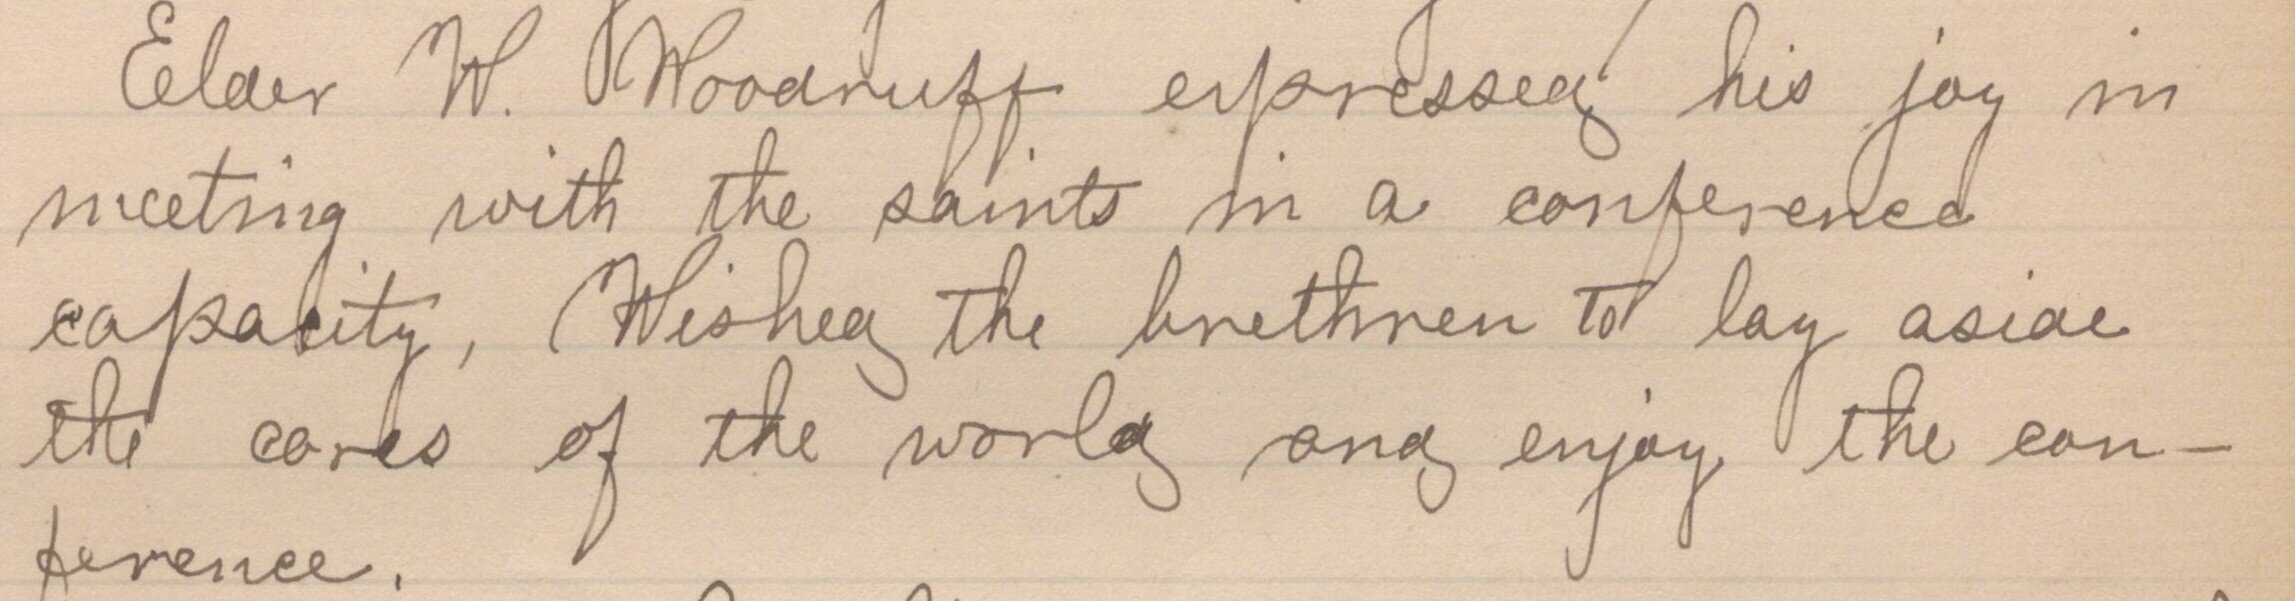 Elder W. Woodruff expressed his joy in
meeting with the saints in a conference
capacity, Wished the brethren to lay aside
the cares of the world and enjoy the con-
ference.